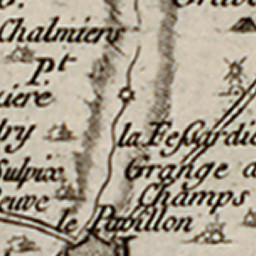 Chalmiers
Pt
iere
dry
la Fessardie
Sulpix
Grange a
Champs
euve
le Pavillon